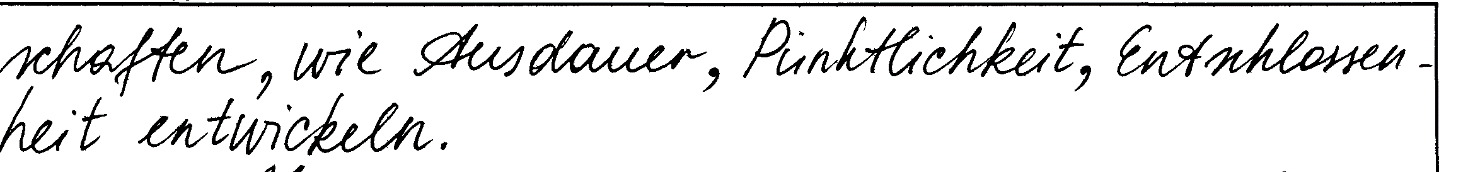 schaften, wie Ausdauer, Pünktlichkeit, Entschlossen-
heit entwickeln.